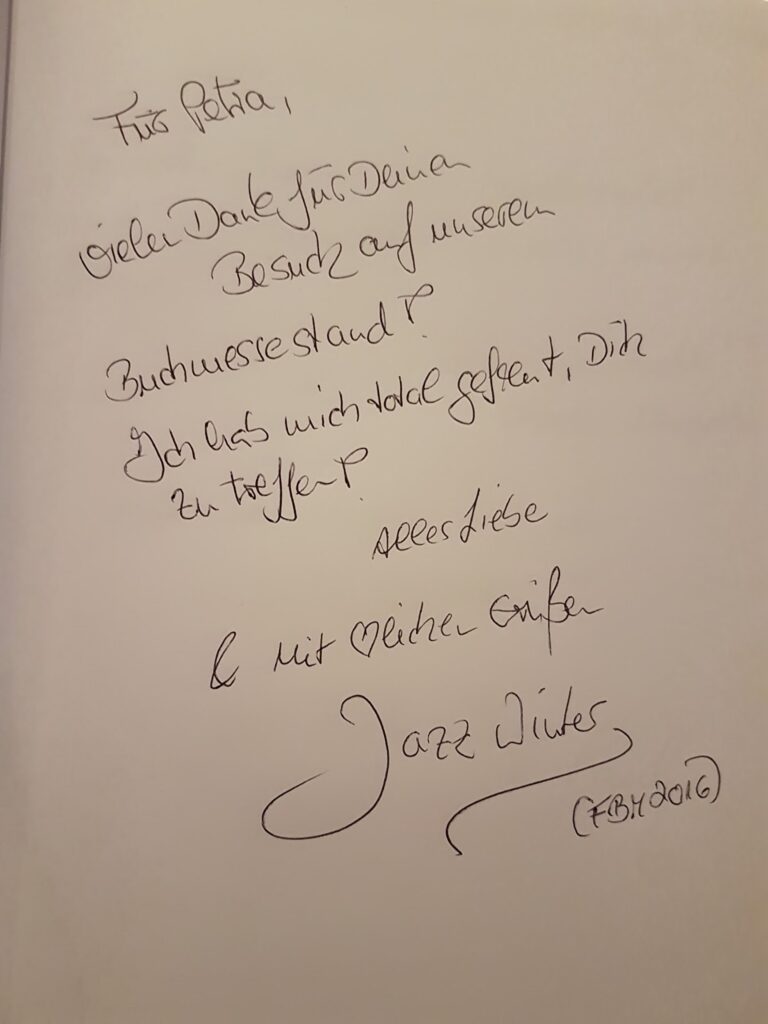 Für Petra,
vielen Dank für Deinen
Besuch auf unserem
Buchmessestand!
Ich hab mich total gefreut, Dich
zu treffen!
Alles Liebe
& Mit ♡lichen Grüßen
Jazz Winter
(FBM 2016)